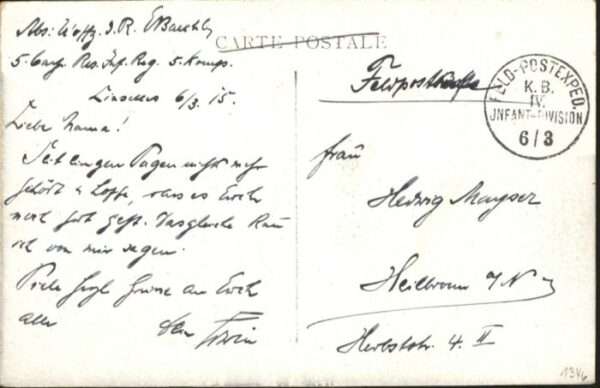 Abs: Uoffz. d. R. E. Baechle
CARTE POSTALE
5. bayr. Res. Inf. Reg. 5. Komp.
Linselles 6/3. 15.
Feldpostkarte
FELD-POSTEXPED.
K.B.
IV.
INFANT-DIVISION
6/3
Liebe Mama!
Seit einigen Tagen nichts mehr
gehört u. hoffe, dass es Euch
noch gut geht. Dasgleiche kann
ich von mir sagen.
Viele herzl. Grüsse an Euch
alle
dein Erwin
Frau
Hedwig Mayser
Heilbronn a/N
Herbststr. 4. II
1346